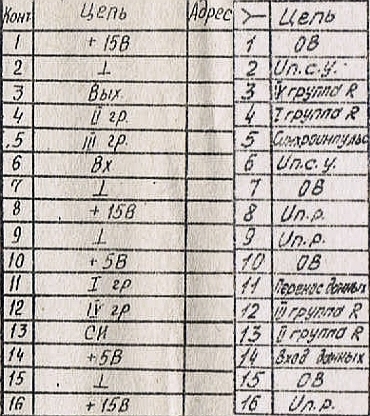 Конт Цепь Адрес >— Цепь
1 + 15В 1 0В
2 ⊥ 2 Uп.с.у.
3 Вых. 3 IV группа R
4 II гр. 4 I группа R
5 III гр. 5 Синхроимпульс
6 Вх 6 Uп.с.у.
7 ⊥ 7 0В
8 + 15В 8 Uп.р.
9 ⊥ 9 Uп.р.
10 + 5В 10 0В
11 I гр 11 Перенос данных
12 IV гр 12 III группа R
13 СИ 13 II группа R
14 +5В 14 Вход данных
15 ⊥ 15 0В
16 + 15В 16 Uп.р.